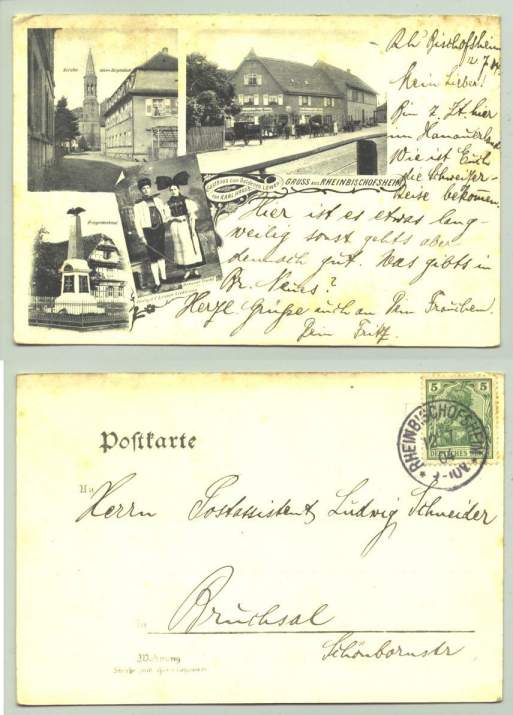 Rh. Bischofsheim
12.7.04
Kirche
Mein Lieber.
Bin z. Zt. hier
im Hanauerland
Wie ist Euch
die Schweizer-
reise bekommen
Gasthaus zum Goldenen Löwen
von Karl
GRUSS aus RHEINBISCHOFSHEIM
Kriegerdenkmal
Hier ist es etwas lang-
weilig sonst gehts aber
dennoch gut. Was gibts in
Br. Neues?
Herzl Grüße auch an Dein Frauchen.
Dein Fritz.
Postkarte
5 5
DEUTSCHES REICH
RHEINBISCHOFSHEIM
12
04
An
Herrn Postassistent Ludwig Schneider
in
Bruchsal
Schönbornstr
Wohnung